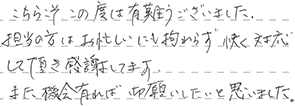 こちらこそこの度は有難うございました.
担当の方はお忙しいにも拘わらず快く対応
して頂き感謝してます.
また、機会有れば御願いしたいと思いました.